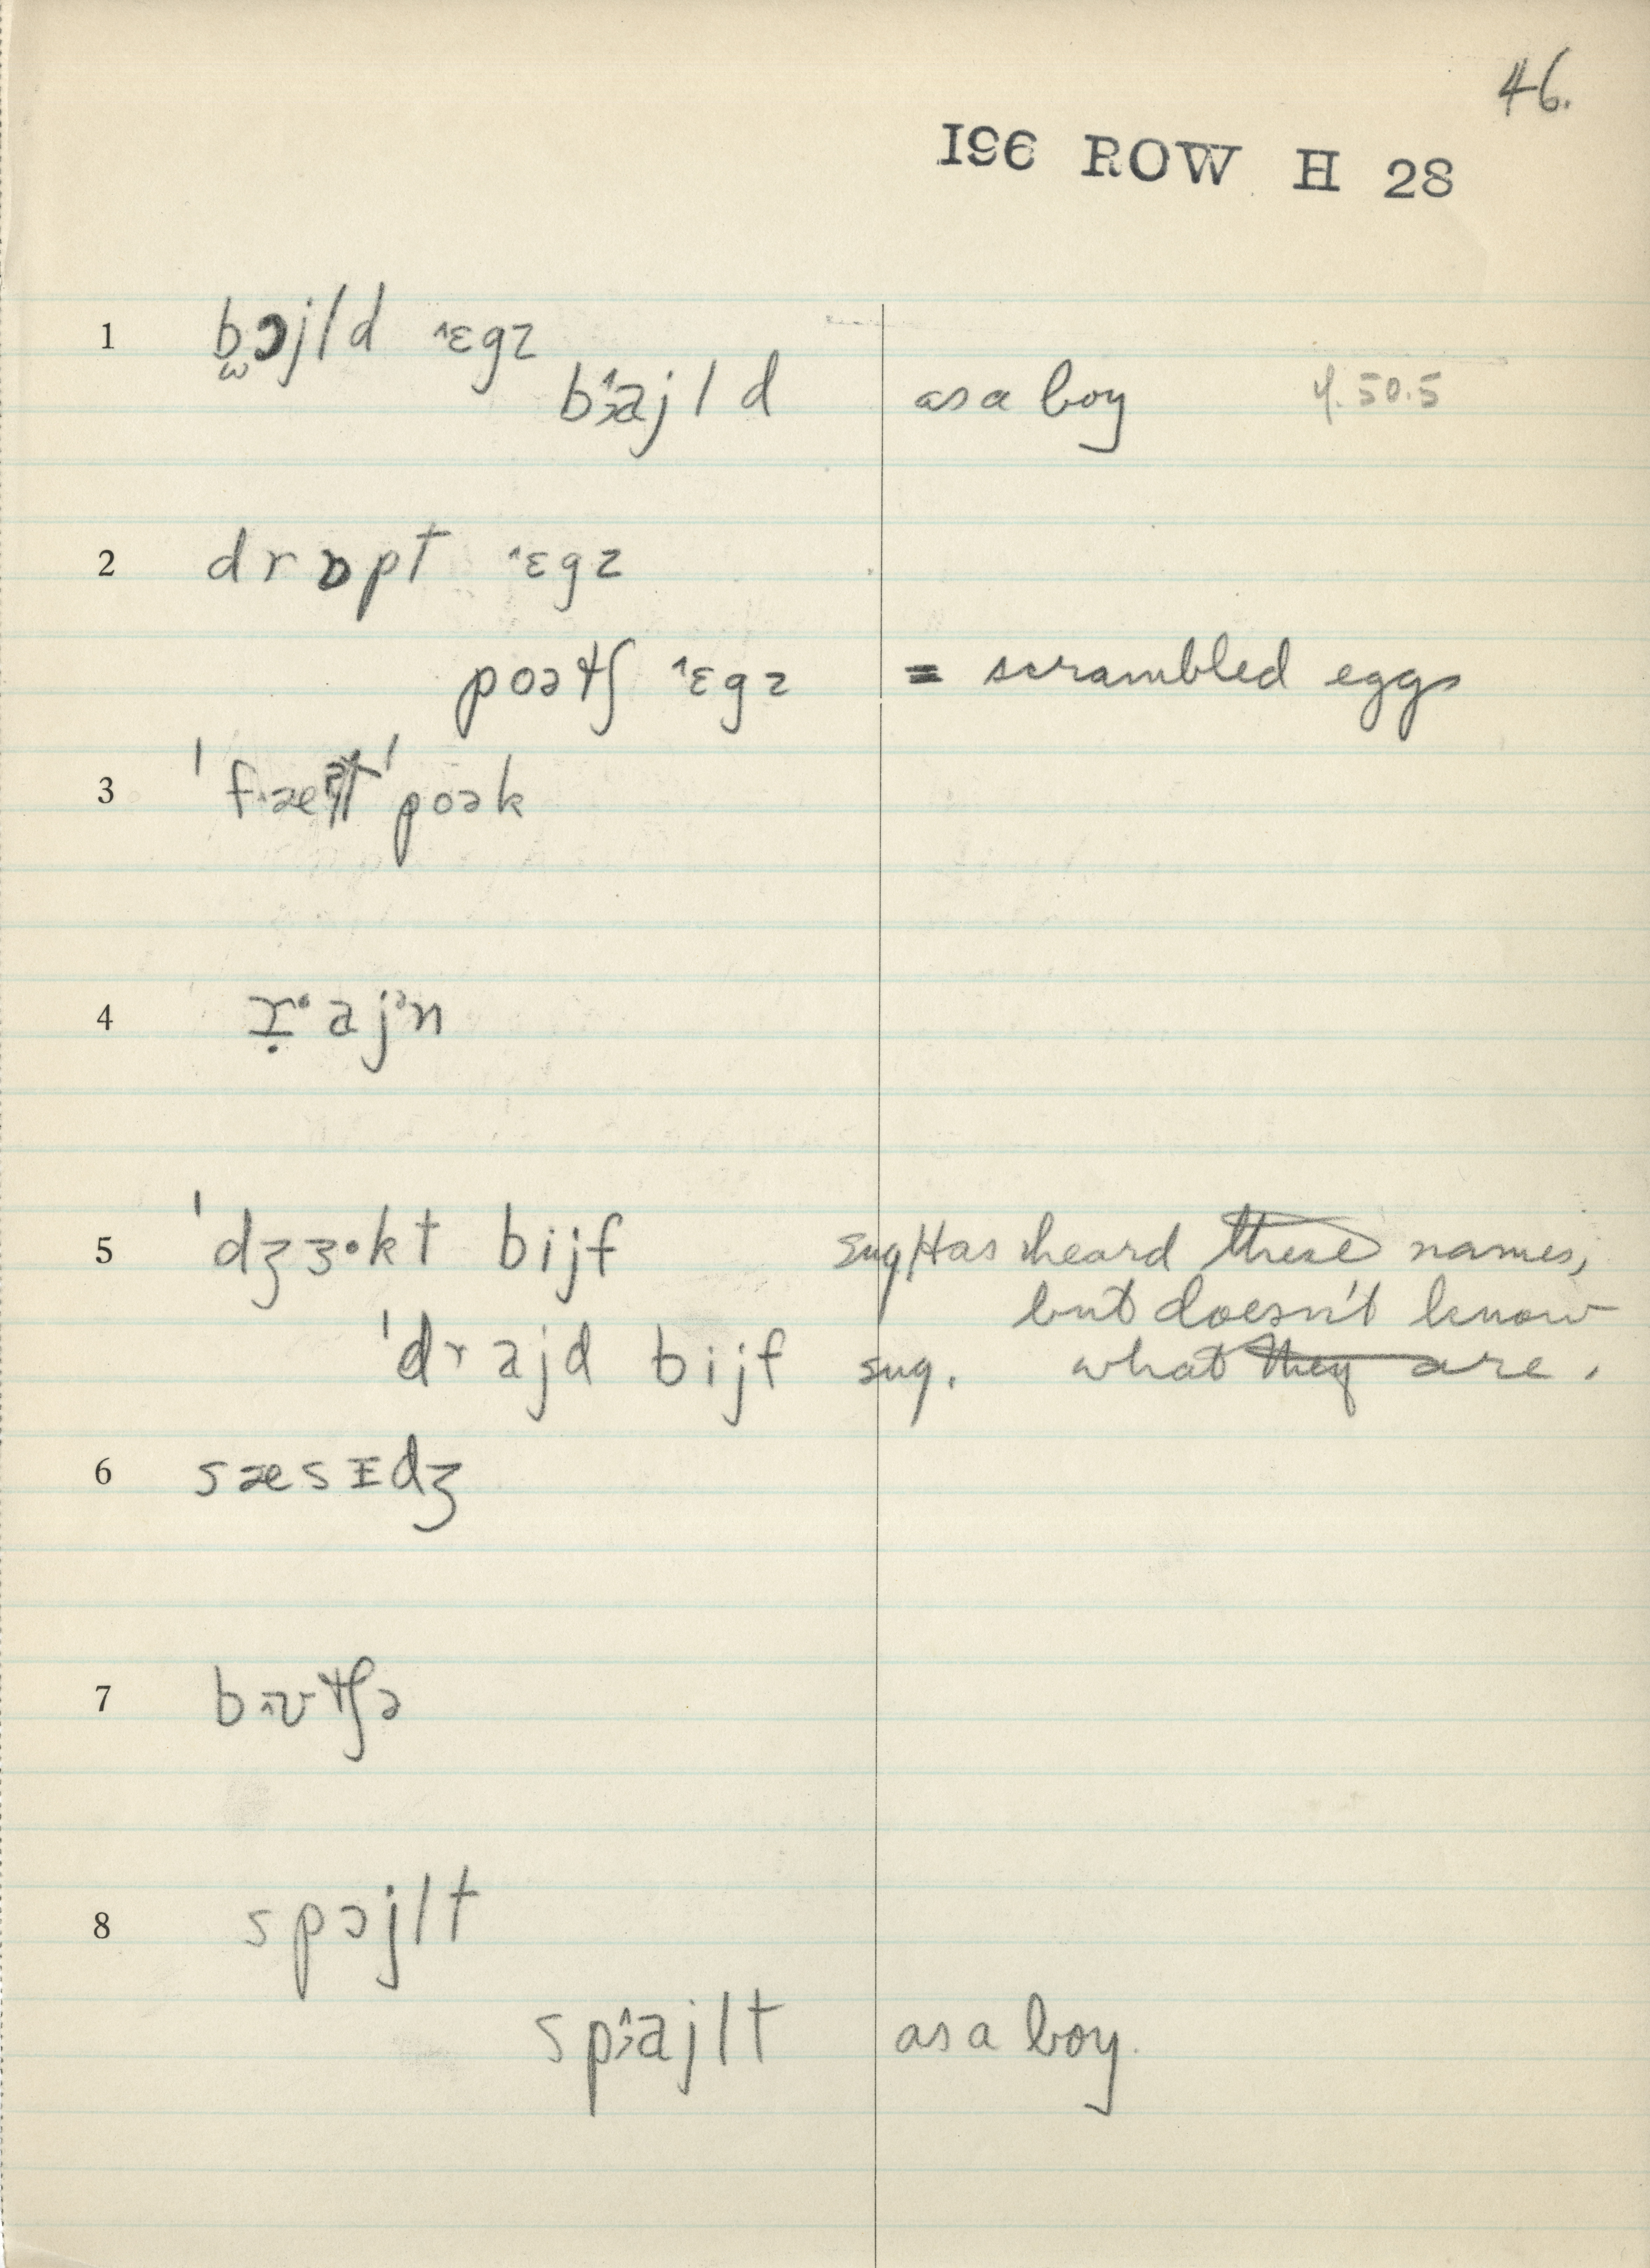 46.
196 ROW H 28
1 b̫ɔjld ˄ɛgz
bɔ̂ajld as a boy 4.50.5
2 drɒpt ˄ɛgz
poətʃ ˄ɛgz = scrambled eggs
3 ˈfæt ˈpoək
4 ajᵊn
5 ˈdʒɜ·kt bijf sug. Has heard these names,
but doesn't know
ˈdrajd bijf sug. what they are.
6 sæsɪdʒ
7 bʊtʃə
8 spɔjlt
spɔ̂ajlt as a boy.